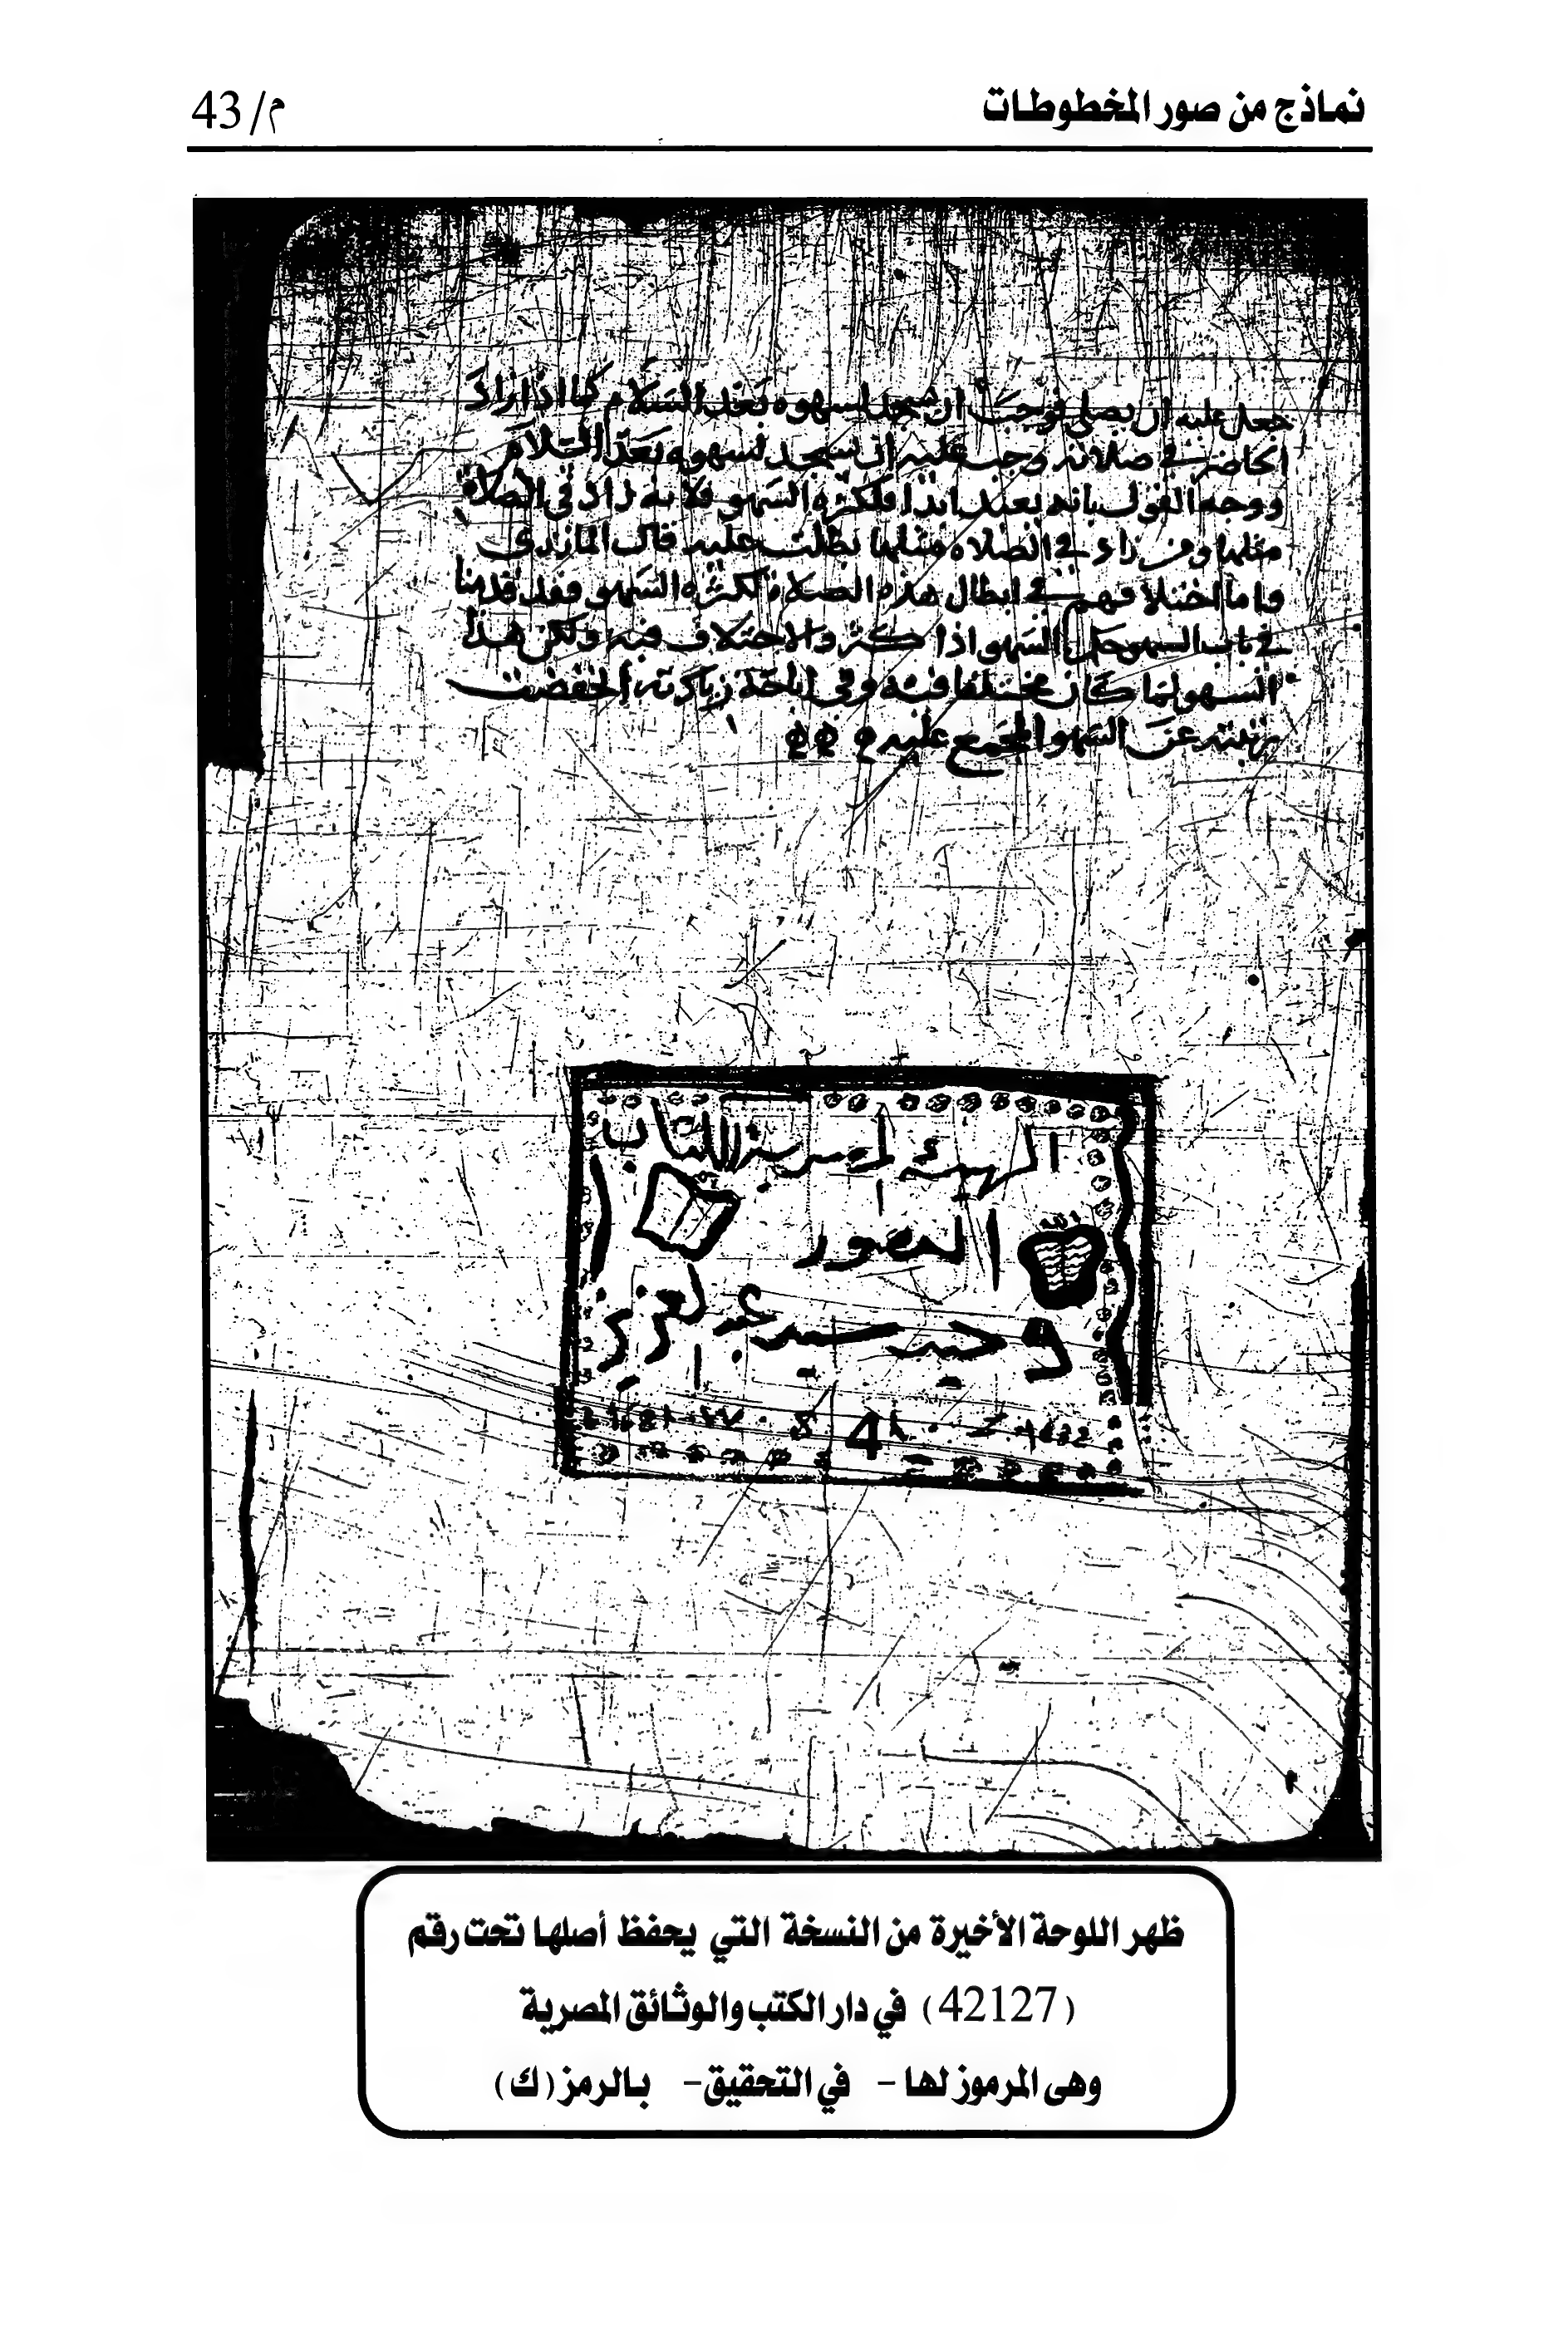 نماذج من صور المخطوطات
م/43
جعل عليه ان يصلي فوجب ان يسجد لسهوه بعد السلام كما اذا زاد
الحاضر في صلاته وجب عليه ان يسجد لسهوه بعد السلام
ووجه القول بانه يعيد ابدا فلكثره السهو ولانه زاد في الصلاة
مثلها ومن زاد في الصلاه مثلها بطلت عليه قال المازري
واما اختلافهم في ابطال هذه الصلاة لكثره السهو فقد قدمنا
في باب السهو حكم السهو اذا كثر والاختلاف فيه ولكن هذا
السهو لما كان مختلفا فيه وفي اباحة زيادته انخفضت
رتبته عن السهو المجمع عليه
الهيئة المصرية للكتاب
المصور
وحيد سيد عبد العزيز
ظهر اللوحة الأخيرة من النسخة التي يحفظ أصلها تحت رقم
(42127) في دار الكتب والوثائق المصرية
وهى المرموز لها - في التحقيق - بالرمز (ك)